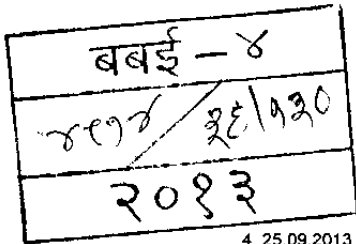 बबई - ४
४९७४ / ३६/१३०
२०१३
4 25.09.2013